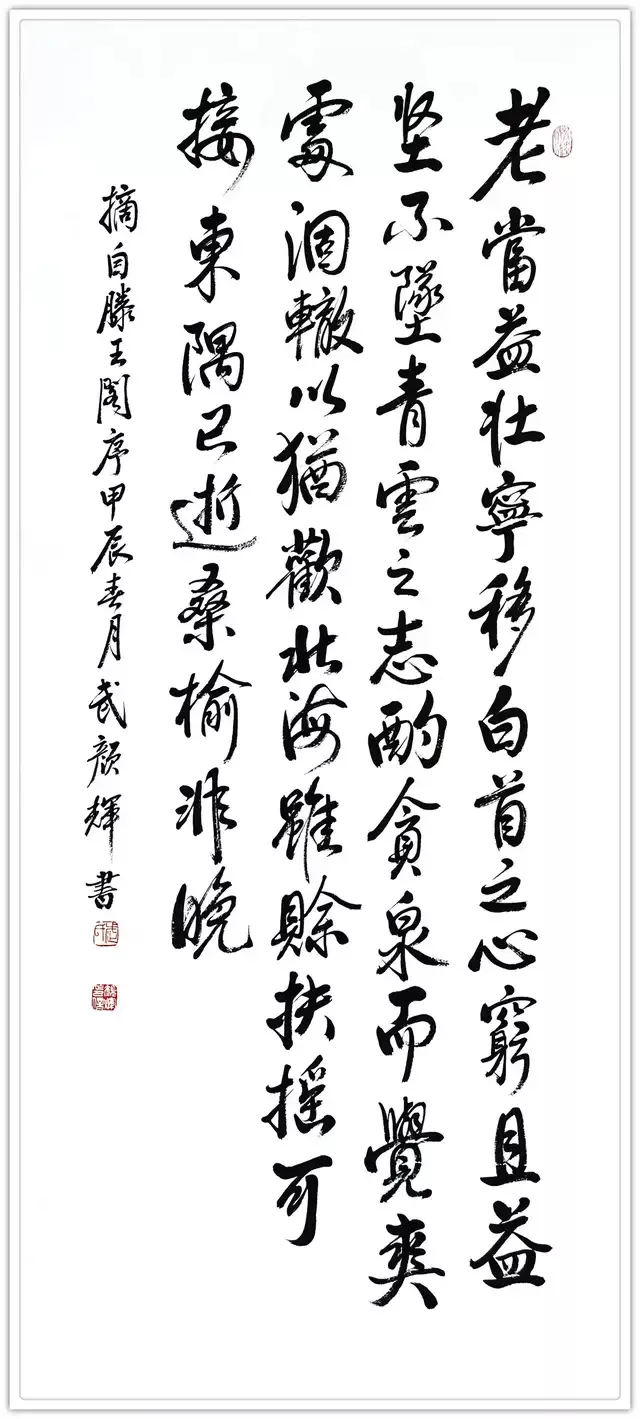 老當益壯寧移白首之心窮且益
堅不墜青雲之志酌貪泉而覺爽
處涸轍以猶歡北海雖賒扶搖可
接東隅已逝桑榆非晚
摘自滕王閣序甲辰春月武顏輝書